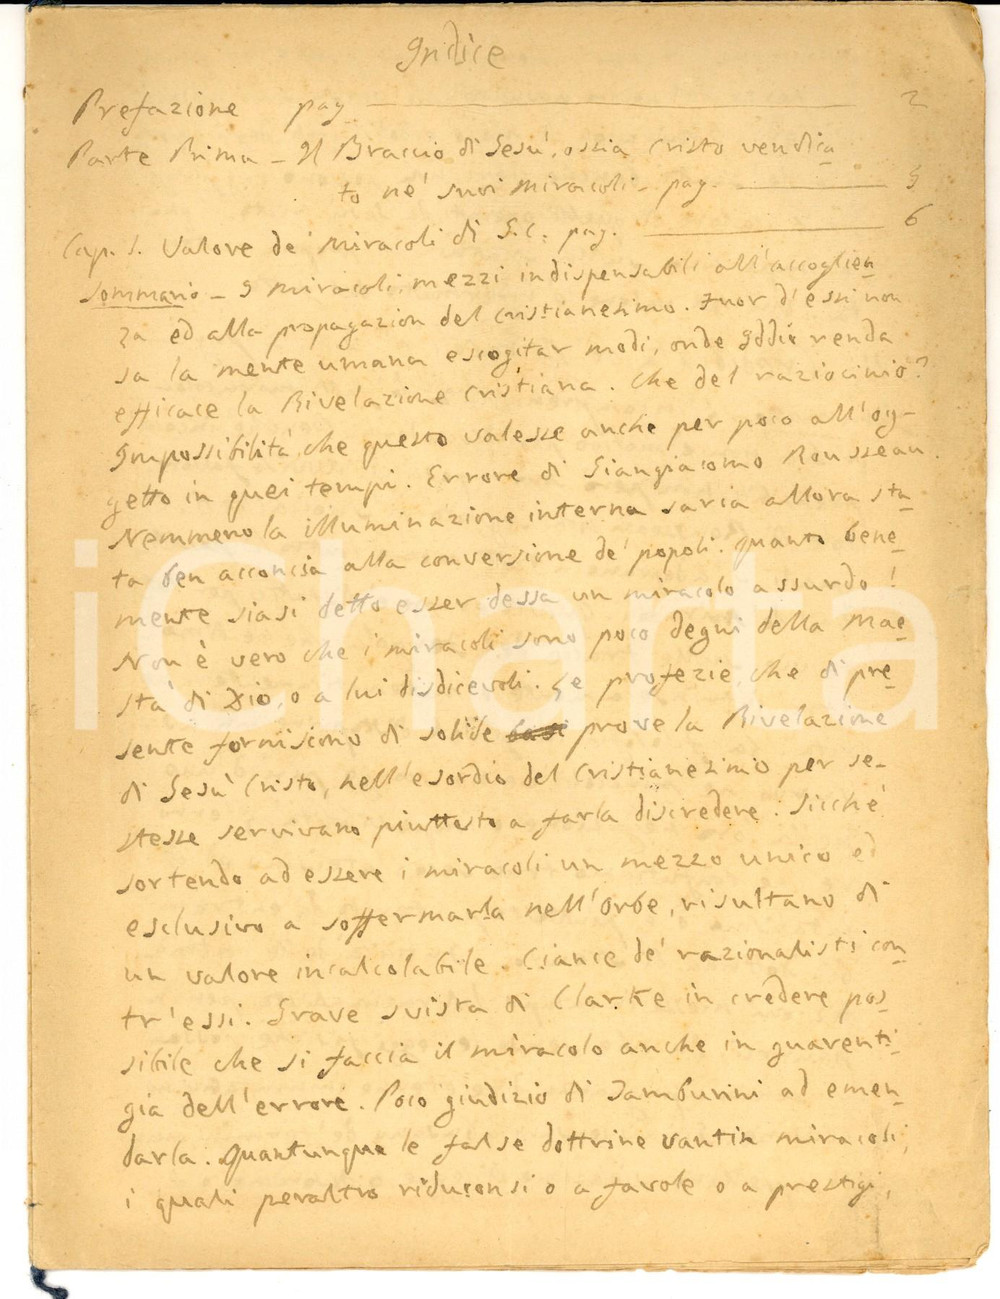 Indice
Prefazione pag. 2
Parte Prima - Il Braccio di Gesù, ossia Cristo vendica
to ne' suoi miracoli - pag. 5
Cap. 1. Valore de' miracoli di G.C. pag. 6
Sommario - I miracoli, mezzi indispensabili all'accoglien
za ed alla propagazion del cristianesimo. Fuor d'essi non
sa la mente umana escogitar modi, onde Iddio renda
efficace la Rivelazione Cristiana. Che del raziocinio?
Impossibilità che questo valesse anche per poco all'og-
getto in quei tempi. Errore di Giangiacomo Rousseau.
Nemmeno la illuminazione interna saria allora sta
ta ben acconcia alla conversione de' popoli. Quanto bene
mente siasi detto esser dessa un miracolo assurdo!
Non è vero che i miracoli sono poco degni della Mae
stà di Dio, o a lui disdicevoli. Le profezie, che di pre
sente forniscono di solide basi prove la Rivelazione
di Gesù Cristo, nell'esordio del Cristianesimo per se-
stesse servivano piuttosto a farla discredere: Sicchè
sortendo ad essere i miracoli un mezzo unico ed
esclusivo a soffermarla nell'Orbe, risultano di
un valore incalcolabile. Ciance de' razionalisti con
tr'essi. Grave svista di Clarke in credere pos
sibile che si faccia il miracolo anche in guarenti-
gia dell'errore. Poco giudizio di Tamburini ad emen
darla. Quantunque le false dottrine vantin miracoli,
i quali peraltro riduconsi o a favole o a prestigi,
iCharta